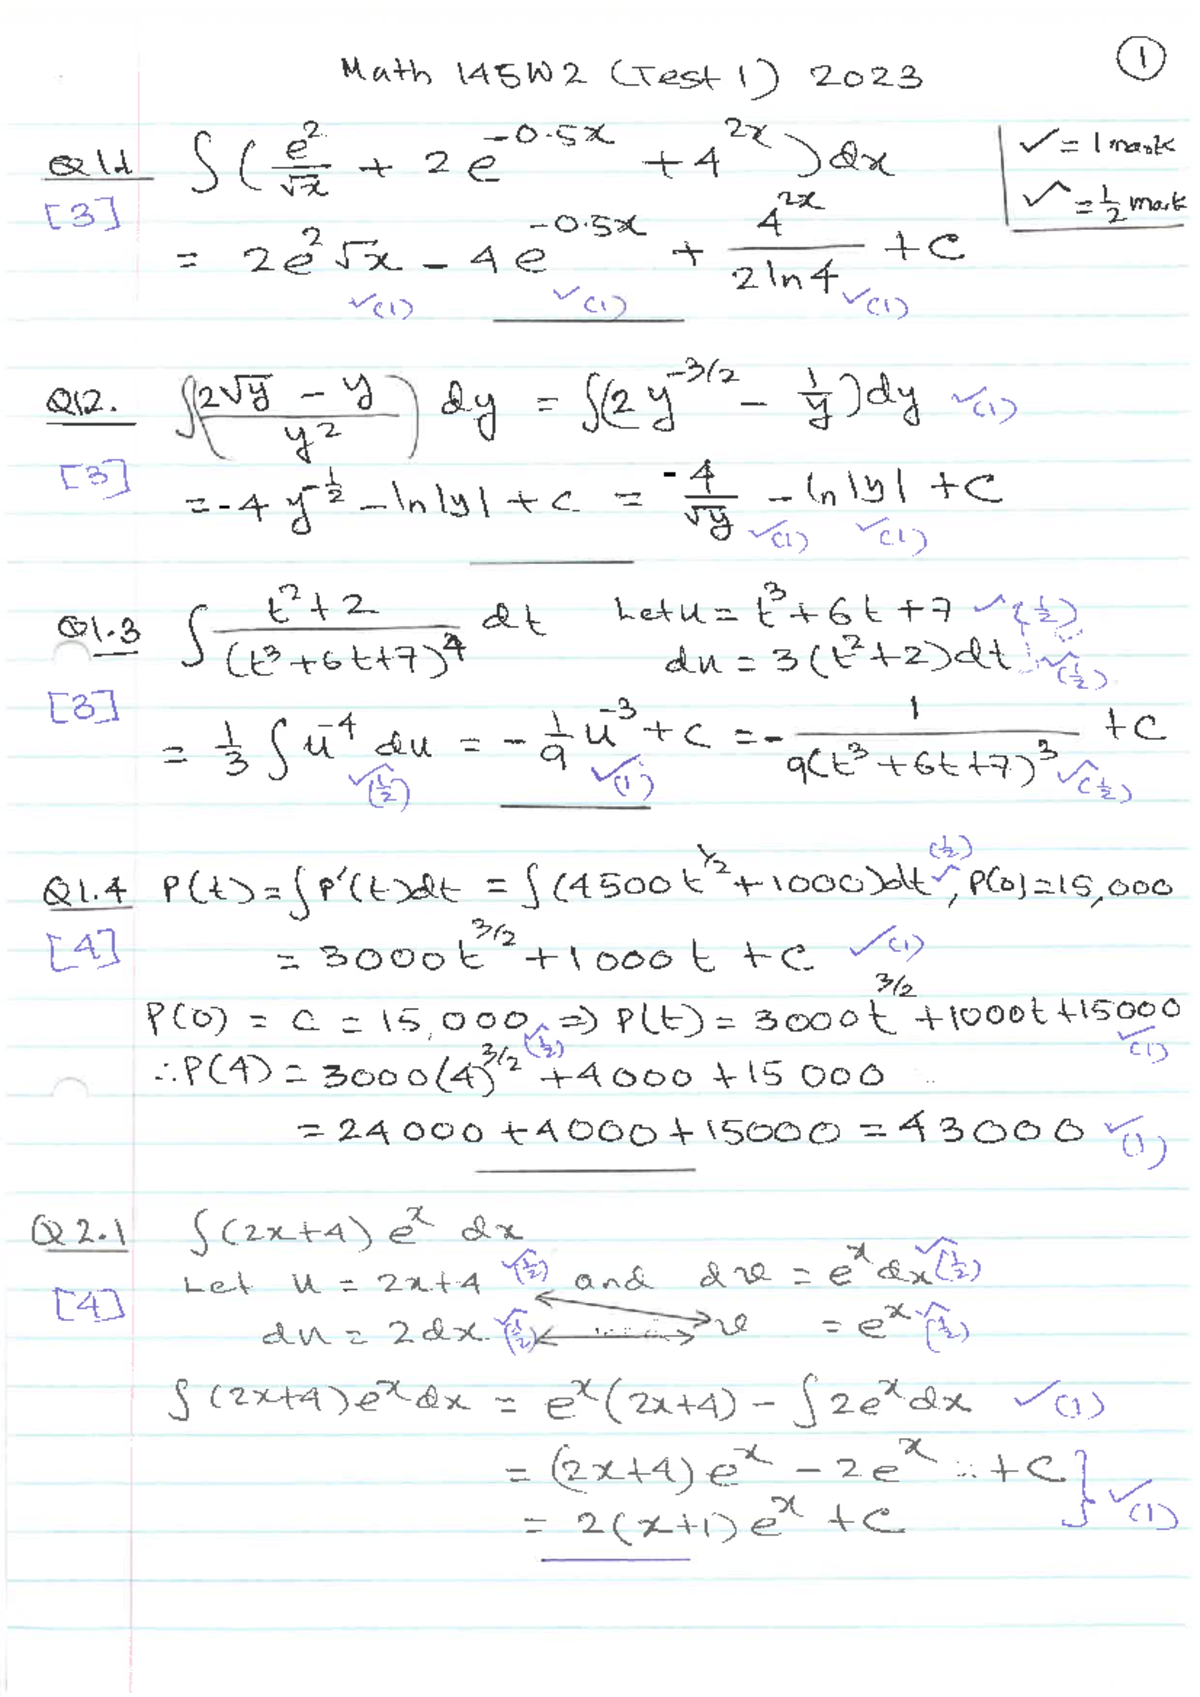 ①
Math 145W2 (Test 1) 2023
Q1.1 ∫(e²/√x + 2e^(-0.5x) + 4^(2x))dx
✓ = 1 mark
✓ = ½ mark
[3]
= 2e²√x - 4e^(-0.5x) + 4^(2x)/(2ln4) + C
✓(1) ✓(1) ✓(1)
Q12. ∫((2√y - y)/y²) dy = ∫(2y^(-3/2) - 1/y)dy ✓(1)
[3]
= -4y^(-1/2) - ln|y| + C = -4/√y - ln|y| + C
✓(1) ✓(1)
Q1.3 ∫ (t²+2)/(t³+6t+7)⁴ dt Let u = t³+6t+7 ✓(½)
du = 3(t²+2)dt ✓(½)
[3]
= 1/3 ∫u⁻⁴ du = -1/9 u⁻³ + C = -1/(9(t³+6t+7)³) + C
✓(½) ✓(1) ✓(½)
Q1.4 P(t) = ∫P'(t)dt = ∫(4500t^(1/2) + 1000)dt ✓(½), P(0) = 15,000
[4]
= 3000t^(3/2) + 1000t + C ✓(1)
P(0) = C = 15,000 ✓(½) ⇒ P(t) = 3000t^(3/2) + 1000t + 15000 ✓(1)
∴ P(4) = 3000(4)^(3/2) + 4000 + 15 000
= 24000 + 4000 + 15000 = 43000 ✓(1)
Q2.1 ∫(2x+4) e^x dx
Let u = 2x+4 ✓(½) and dv = e^x dx ✓(½)
[4]
du = 2dx ✓(½) v = e^x ✓(½)
∫(2x+4)e^x dx = e^x(2x+4) - ∫2e^x dx ✓(1)
= (2x+4)e^x - 2e^x + C
= 2(x+1)e^x + C } ✓(1)